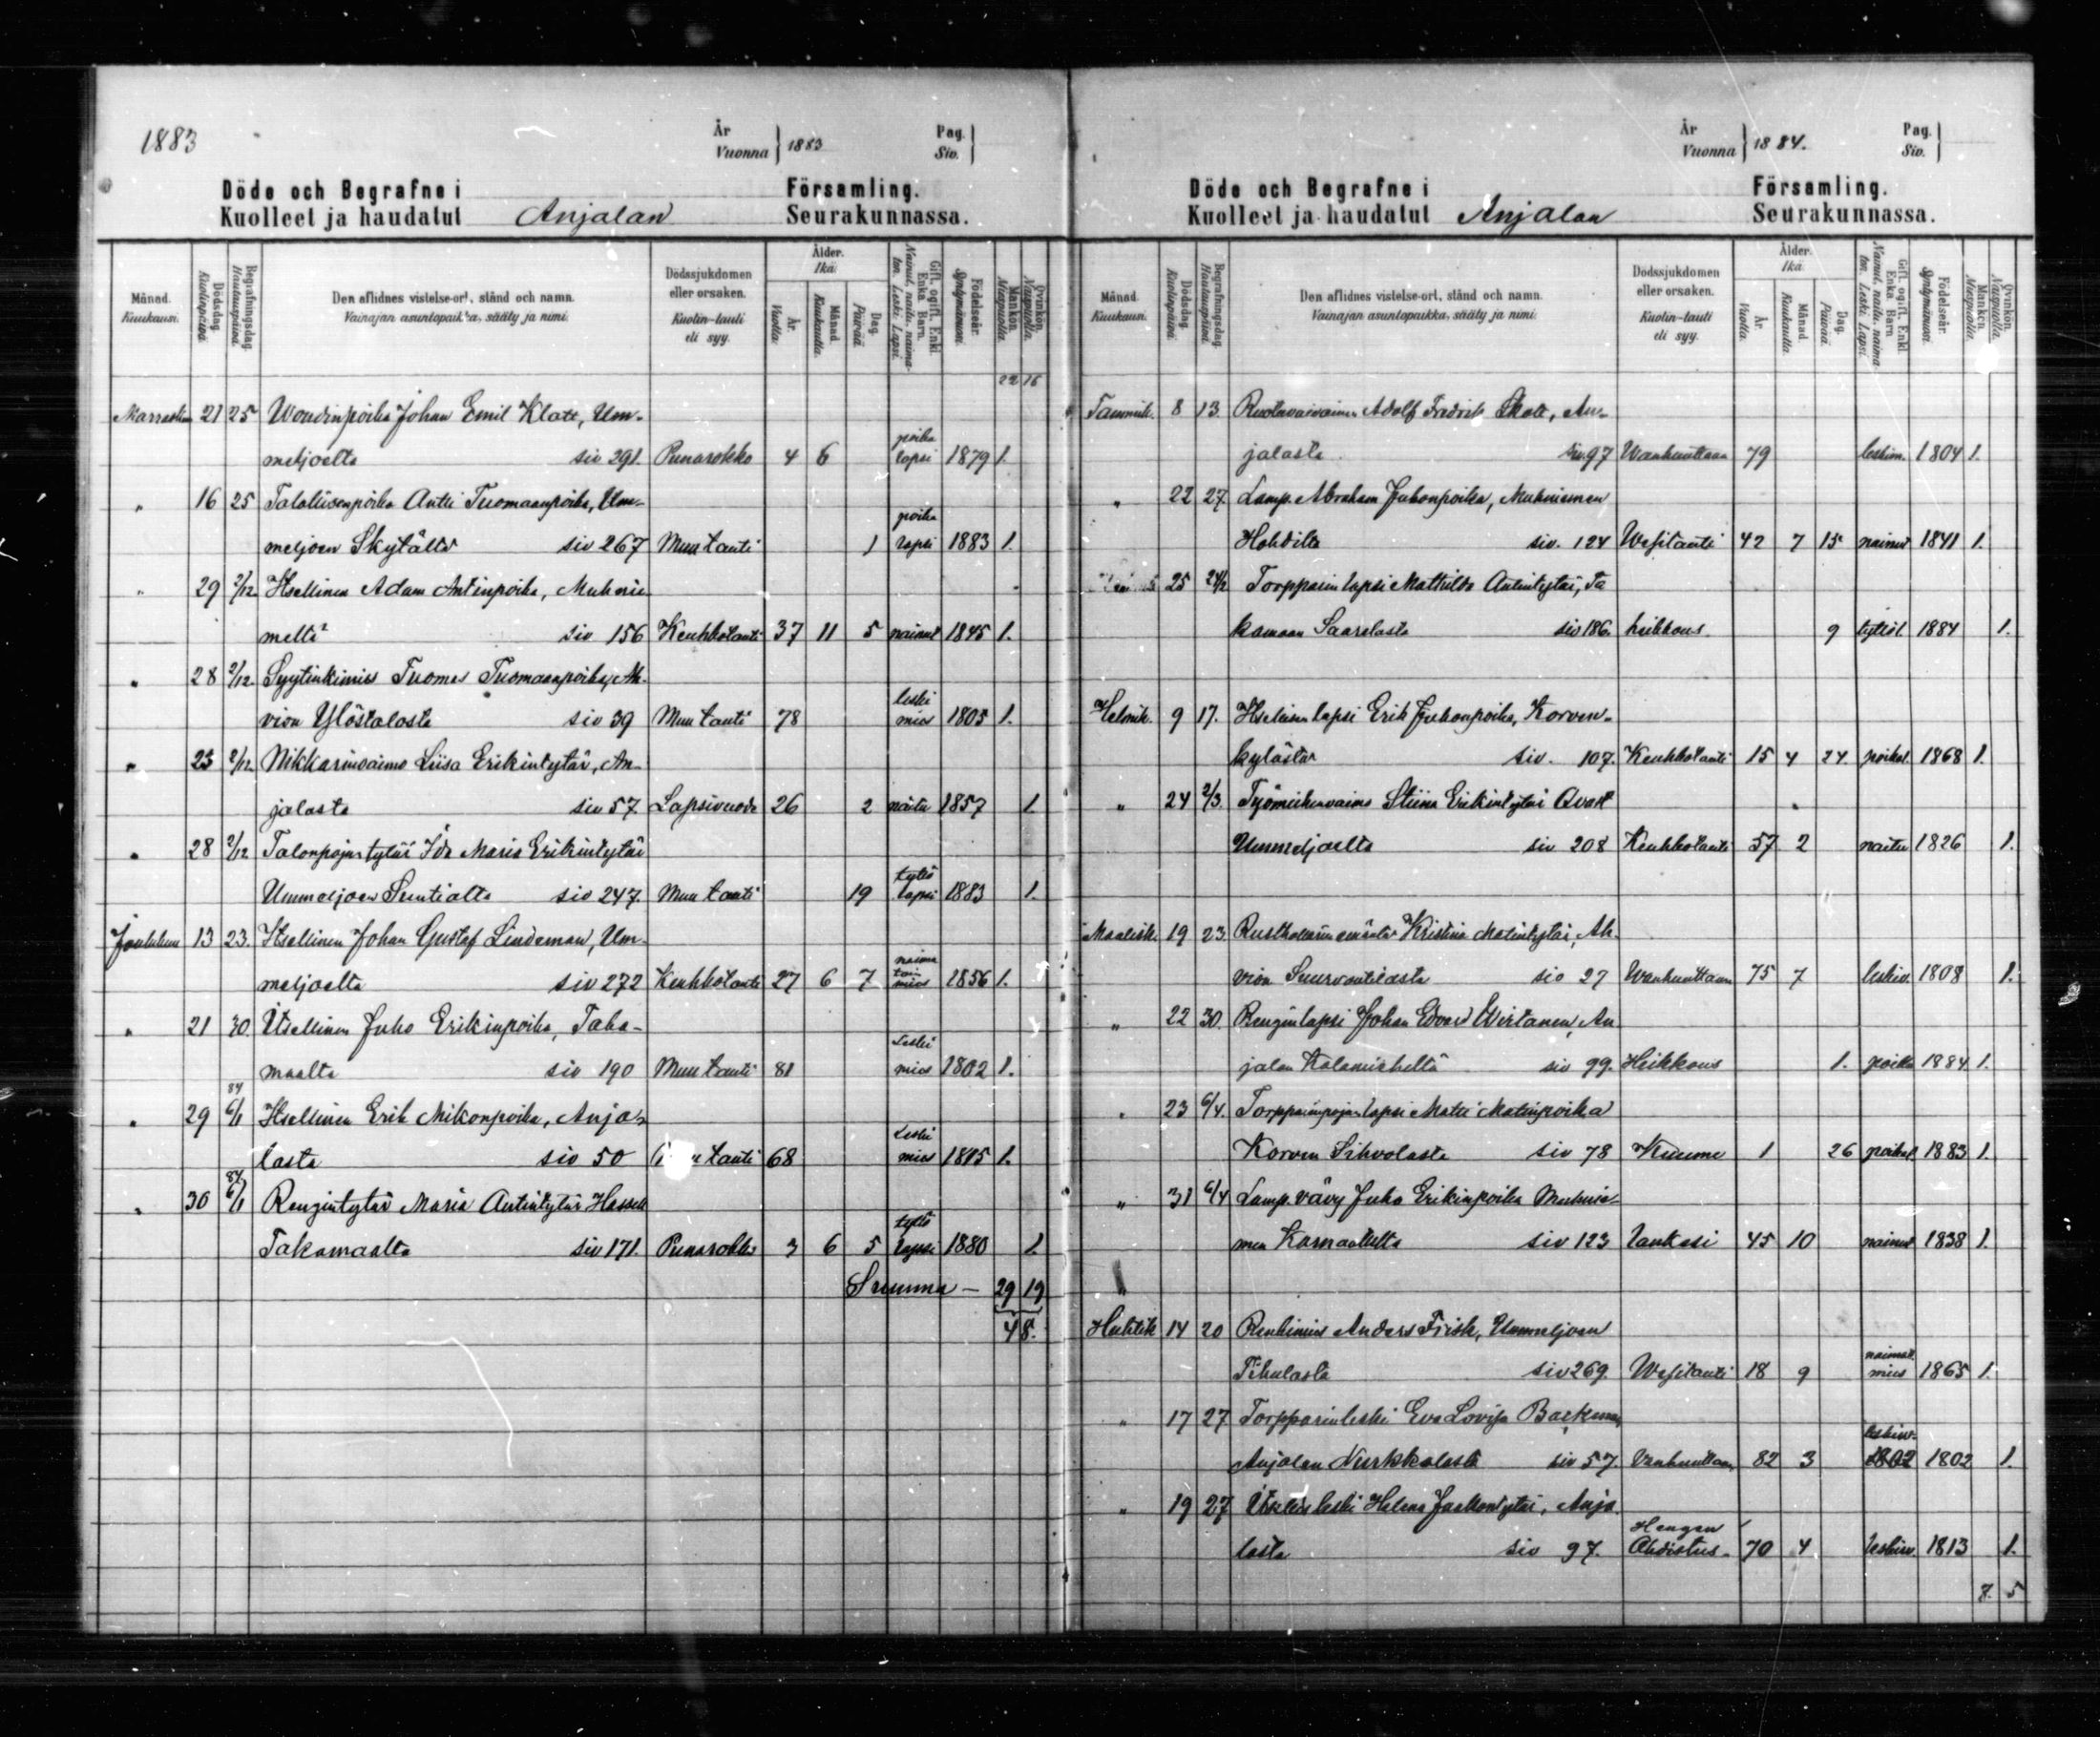 1883
År
Vuonna } 1883
Pag.
Siv. }
Döde och Begrafne i Församling.
Kuolleet ja haudatut Anjalan Seurakunnassa.
Månad. Kuukausi.
Dödsdag. Kuolinpäivä.
Begrafningsdag. Hautauspäivä.
Den aflidnes vistelse-ort, stånd och namn.
Vainajan asuntopaikka, sääty ja nimi.
Dödssjukdomen eller orsaken.
Kuolin-tauti eli syy.
Ålder. Ikä.
År. Vuotta.
Månad. Kuukautta.
Dag. Päivää.
Gift, ogift, Enkl. Enka. Barn.
Nainut, naitu, naimaton. Leski. Lapsi.
Födelseår. Syntymävuosi.
Mankön. Miespuolia.
Qvinkön. Naispuolia.
22 16
Marraskuu 21 25 Woudinpoika Johan Emil Klatt, Um-
meljoelta siv 291. Punarokko 4 6 poika lapsi 1879 1.
" 16 25 Talollisenpoika Antti Tuomaanpoika, Um-
meljoen Skytältä siv 267 Muu tauti 1 poika lapsi 1883 1.
" 29 2/12 Itsellinen Adam Antinpoika, Muhnie
meltä siv 156 Keuhkotauti 37 11 5 nainut 1845 1.
" 28 2/12. Syytinkimies Tuomas Tuomaanpoika, Ah-
vion Ylöstalosta siv 39 Muu tauti 78 leski mies 1805 1.
" 25 2/12 Nikkarinvaimo Liisa Erikintytär, An-
jalasta siv 57. Lapsivuode 26 2 naitu 1857 1.
" 28 2/12 Talonpojantytär Ida Maria Erikintytär
Ummeljoen Suntialta siv 247. Muu tauti 19 tyttö lapsi 1883 1.
Joulukuu 13 23. Itsellinen Johan Gustaf Lindeman, Um-
meljoelta siv 272 Keuhkotauti 27 6 7 naima toin mies 1856 1.
" 21 30. Itsellinen Juho Erikinpoika, Taka-
maalta siv 190 Muu tauti 81 Leski mies 1802 1.
" 29 84 6/1 Itsellinen Erik Mikonpoika, Anja-
lasta siv 50 tauti 68 Leski mies 1815 1.
" 30 84 6/1 Rengintytär Maria Antintytär Hassell
Takamaalta siv 171. Punarokko 3 6 5 tyttö lapsi 1880 1
Summa — 29 19
48.
År
Vuonna } 1884.
Pag.
Siv. }
Döde och Begrafne i Församling.
Kuolleet ja haudatut Anjalan Seurakunnassa.
Månad. Kuukausi.
Dödsdag. Kuolinpäivä.
Begrafningsdag. Hautauspäivä.
Den aflidnes vistelse-ort, stånd och namn.
Vainajan asuntopaikka, sääty ja nimi.
Dödssjukdomen eller orsaken.
Kuolin-tauti eli syy.
Ålder. Ikä.
År. Vuotta.
Månad. Kuukautta.
Dag. Päivää.
Gift, ogift, Enkl. Enka. Barn.
Nainut, naitu, naimaton. Leski. Lapsi.
Födelseår. Syntymävuosi.
Mankön. Miespuolia.
Qvinkön. Naispuolia.
Tammik. 8 13. Ruotuvaivainen Adolf Fredrik Skott, An-
jalasta siv. 97 Wanhuuttaan 79 leskim. 1804 1.
" 22 27. Lamp. Abraham Juhonpoika, Muhniemen
siv. 124 Wesitauti 42 7 15 nainut 1841 1.
25 24/2 Torpparin lapsi Mathilda Antintytär, Ta
kamaan Saarelasta siv 186. heikkous 9 tyttöl. 1884 1.
Helmik. 9 17. Itsellisen lapsi Erik Juhonpoika, Korven-
kylästä siv. 107. Keuhkotauti 15 4 24. poikal. 1868 1.
" 24 2/3. Työmiehenvaimo Stiina Erikintytär Qvast
Ummeljoelta siv 208 Keuhkotauti 57 2 naitu 1826 1.
Maalisk. 19 23. Rusthollarin emäntä Kristina Matintytär, Ah-
vion siv 27 Wanhuuttaan 75 7 leskiv. 1808 1.
" 22 30. Renginlapsi Johan Edvard Wirtanen, An
jalan Kalamieheltä siv 99. Heikkous 1. poika 1884 1.
" 23 6/4. Torpparinpojan lapsi Matti Matinpoika
Korven Sihvolasta siv 78 Kuume 1 26 poikal. 1883 1.
" 31 6/4 Lamp. vävy Juho Erikinpoika Muhnie-
men siv 123 45 10 nainut 1838 1.
"
Huhtik 14 20 Renkimies Anders Frisk, Ummeljoen
Tihulasta siv 269. Wesitauti 18 9 naimat. mies 1865 1.
" 17 27 Torpparinleski Eva Lovisa Backman,
Anjalan Nurkkalasta siv 57. Vanhuuttaan 82 3 leskiv. 1802 1802 1.
" 19 27 Itsellisleski Helena Jaakontytär, Anja
lasta siv 97. Hengen Ahdistus- 70 4 leskiv. 1813 1.
7. 5